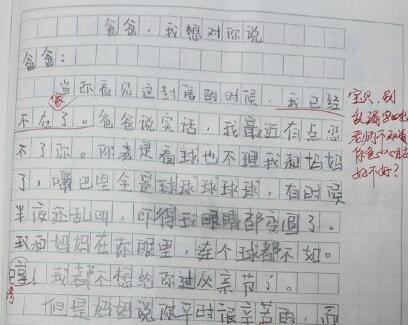 爸爸，我想对你说
爸爸：
当你看见这封信的时候，我已经
不在了。爸爸说实话，我最近有点忍
不了你。你老是看球也不理我和妈妈
了，嘴巴里全是球球球球球。有时候
半夜还乱叫，吓得我眼睛都变圆了。
我和妈妈在你眼里，连个球都不如。
哼！我都不想给你过父亲节了。
但是妈妈说你平时很辛苦的，而
宝贝，别
老师不知道
好不好？